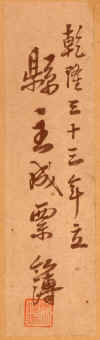 乾隆三十三年立
縣主成票簿